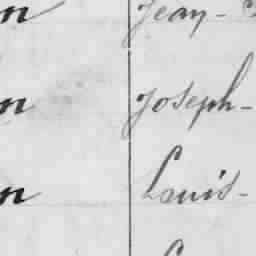 n Jean-
n Joseph-
n Louis-